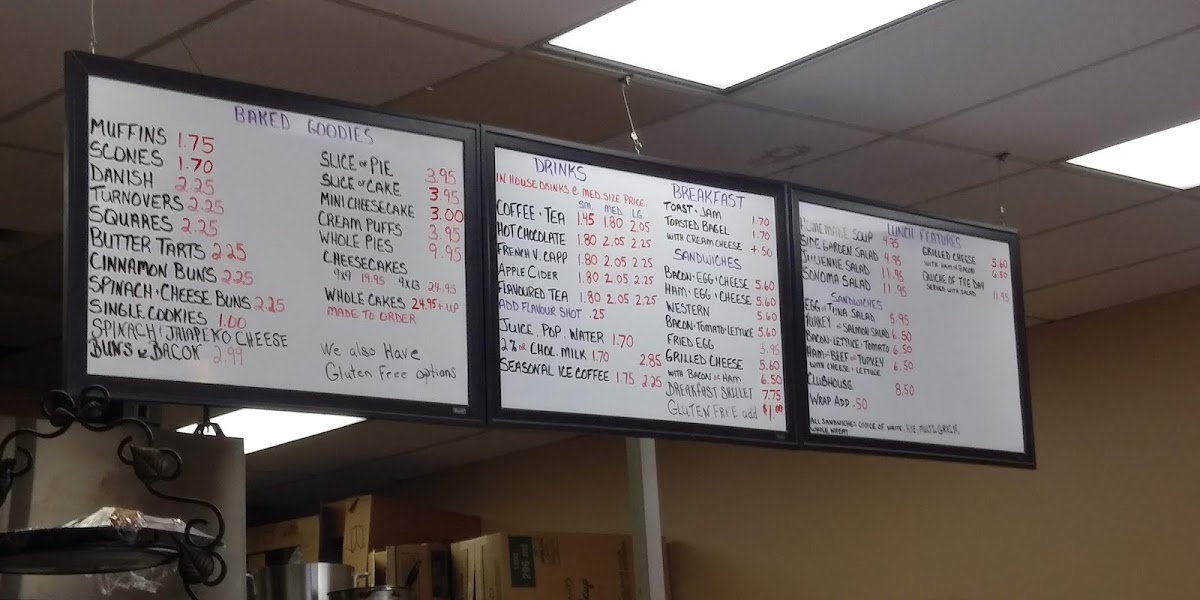 BAKED GOODIES
MUFFINS 1.75
SCONES 1.70
DANISH 2.25
TURNOVERS 2.25
SQUARES 2.25
BUTTER TARTS 2.25
CINNAMON BUNS 2.25
SPINACH + CHEESE BUNS 2.25
SINGLE COOKIES 1.00
SPINACH & JALAPEÑO CHEESE
BUNS w BACON 2.99
SLICE OF PIE 3.95
SLICE OF CAKE 3.95
MINI CHEESECAKE 3.00
CREAM PUFFS 3.95
WHOLE PIES 9.95
CHEESECAKES
9x9 19.95 9x13 24.95
WHOLE CAKES 24.95 + UP
MADE TO ORDER
We also Have
Gluten Free options
DRINKS
IN HOUSE DRINKS @ MED. SIZE PRICE.
SM. MED. LG.
COFFEE + TEA 1.45 1.80 2.05
HOT CHOCOLATE 1.80 2.05 2.25
FRENCH V. CAPP 1.80 2.05 2.25
APPLE CIDER 1.80 2.05 2.25
FLAVOURED TEA 1.80 2.05 2.25
ADD FLAVOUR SHOT .25
JUICE, POP, WATER 1.70
2% OR CHOC. MILK 1.70 2.85
SEASONAL ICE COFFEE 1.75 2.25
BREAKFAST
TOAST + JAM 1.70
TOASTED BAGEL 1.70
WITH CREAM CHEESE +.50
SANDWICHES
BACON + EGG + CHEESE 5.60
HAM + EGG + CHEESE 5.60
WESTERN 5.60
BACON-TOMATO-LETTUCE 5.60
FRIED EGG 3.95
GRILLED CHEESE 5.60
WITH BACON OR HAM 6.50
BREAKFAST SKILLET 7.75
GLUTEN FREE add $1.00
LUNCH FEATURES
HOMEMADE SOUP 4.75
SIDE GARDEN SALAD 4.95
JULIENNE SALAD 11.95
SONOMA SALAD 11.95
SANDWICHES
EGG OR TUNA SALAD 5.95
TURKEY OR SALMON SALAD 6.50
BACON-LETTUCE-TOMATO 6.50
HAM OR BEEF OR TURKEY 6.50
WITH CHEESE + LETTUCE
CLUBHOUSE 8.50
WRAP ADD .50
ALL SANDWICHES CHOICE OF WHITE, RYE, MULTIGRAIN,
WHOLE WHEAT
GRILLED CHEESE 5.60
WITH HAM OR BACON 6.50
QUICHE OF THE DAY
SERVED WITH SALAD 11.95